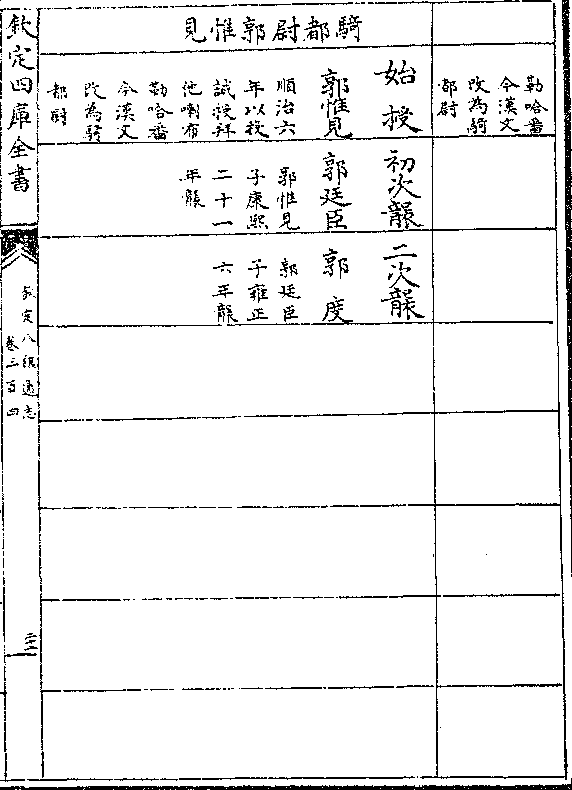 勒哈番
今漢文
改為騎
都尉
騎都尉郭惟見
始授
郭惟見
順治六
年以投
誠授拜
他喇布
勒哈番
今漢文
改為騎
都尉
初次襲
郭廷臣
郭惟見
子康熙
二十一
年襲
二次襲
郭度
郭廷臣
子雍正
六年襲
欽定四庫全書
欽定八旗通志
卷三百四